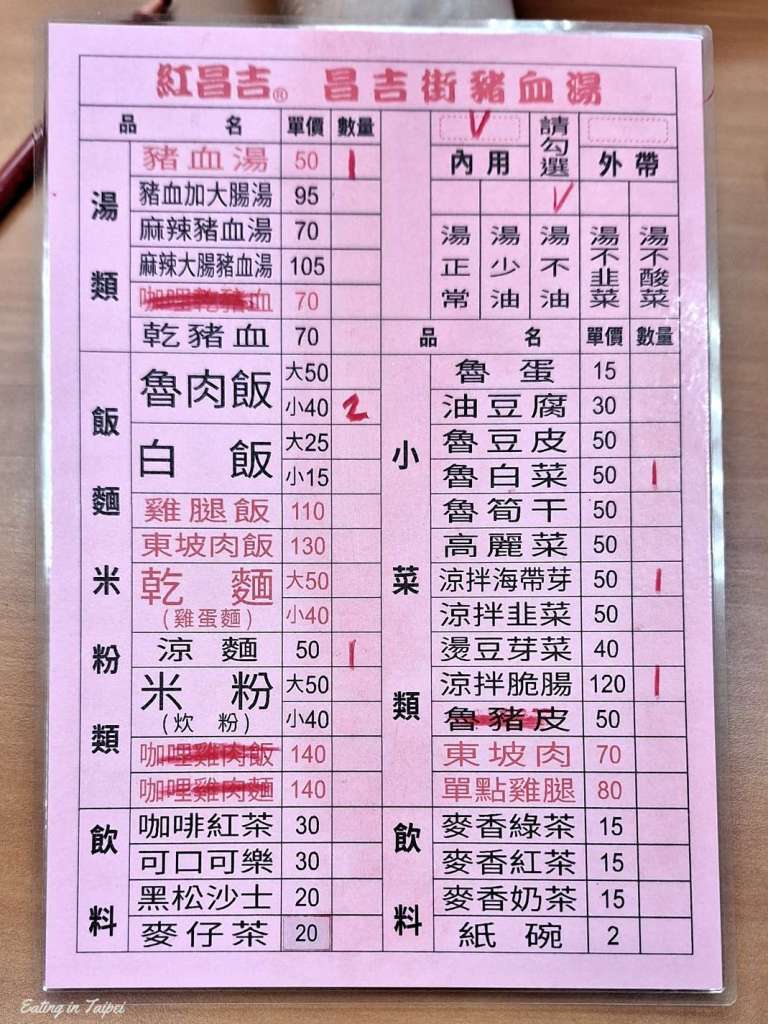 紅昌吉® 昌吉街豬血湯
品 名 單價 數量
湯類
豬血湯 50 1
豬血加大腸湯 95
麻辣豬血湯 70
麻辣大腸豬血湯 105
咖哩乾豬血 70
乾豬血 70
飯麵米粉類
魯肉飯 大50
小40 2
白飯 大25
小15
雞腿飯 110
東坡肉飯 130
乾麵 大50
(雞蛋麵) 小40
涼麵 50 1
米粉 大50
(炊粉) 小40
咖哩雞肉飯 140
咖哩雞肉麵 140
飲料
咖啡紅茶 30
可口可樂 30
黑松沙士 20
麥仔茶 20
V 請勾選
內用 外帶
V
湯正常 湯少油 湯不油 湯不韭菜 湯不酸菜
品 名 單價 數量
小菜類
魯蛋 15
油豆腐 30
魯豆皮 50
魯白菜 50 1
魯筍干 50
高麗菜 50
涼拌海帶芽 50 1
涼拌韭菜 50
燙豆芽菜 40
涼拌脆腸 120 1
魯豬皮 50
東坡肉 70
單點雞腿 80
飲料
麥香綠茶 15
麥香紅茶 15
麥香奶茶 15
紙碗 2
Eating in Taipei